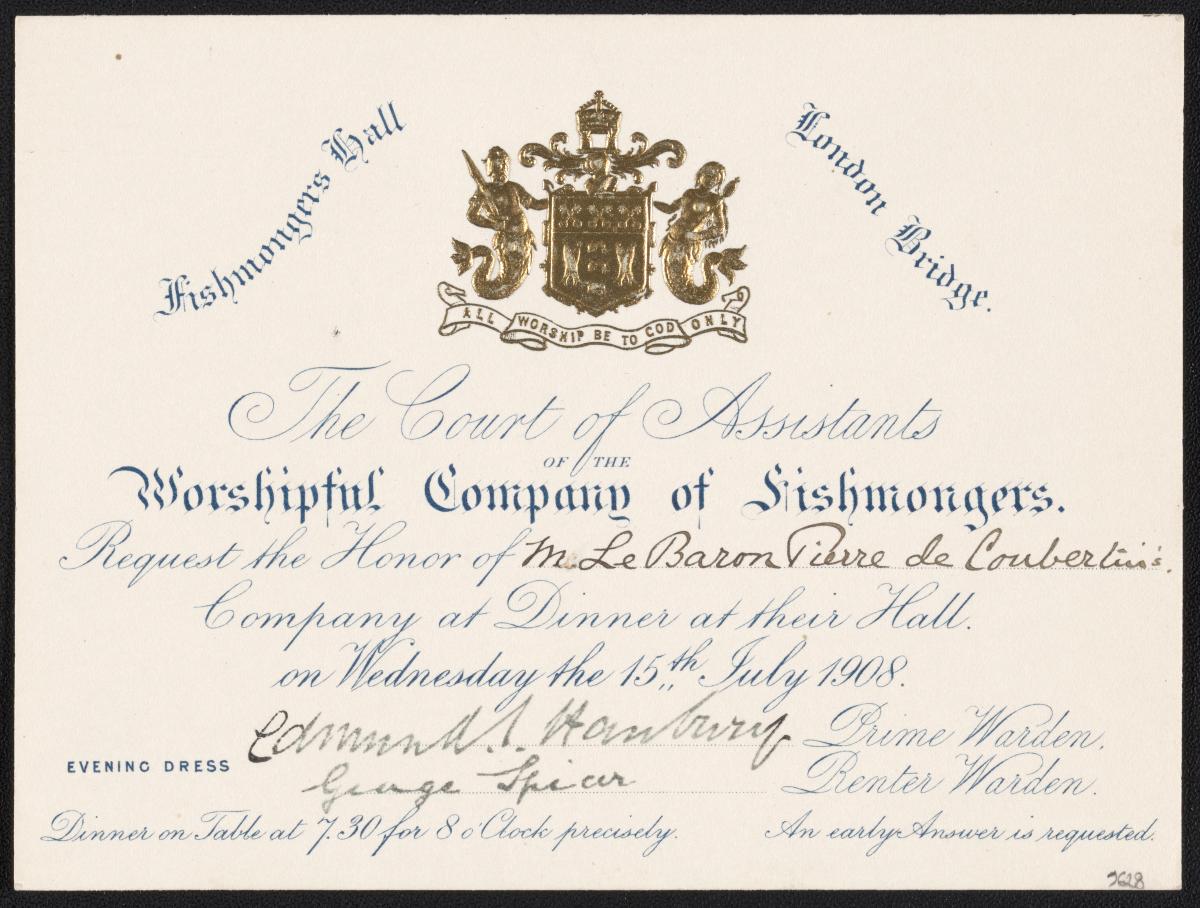 Fishmongers Hall
London Bridge.
ALL WORSHIP BE TO GOD ONLY
The Court of Assistants
OF THE
Worshipful Company of Fishmongers.
Request the Honor of M. Le Baron Pierre de Coubertin's.
Company at Dinner at their Hall.
on Wednesday the 15th July 1908.
Edmund S. Hanbury Prime Warden.
EVENING DRESS
George Spicer Renter Warden.
Dinner on Table at 7.30 for 8 o'Clock precisely.
An early Answer is requested.